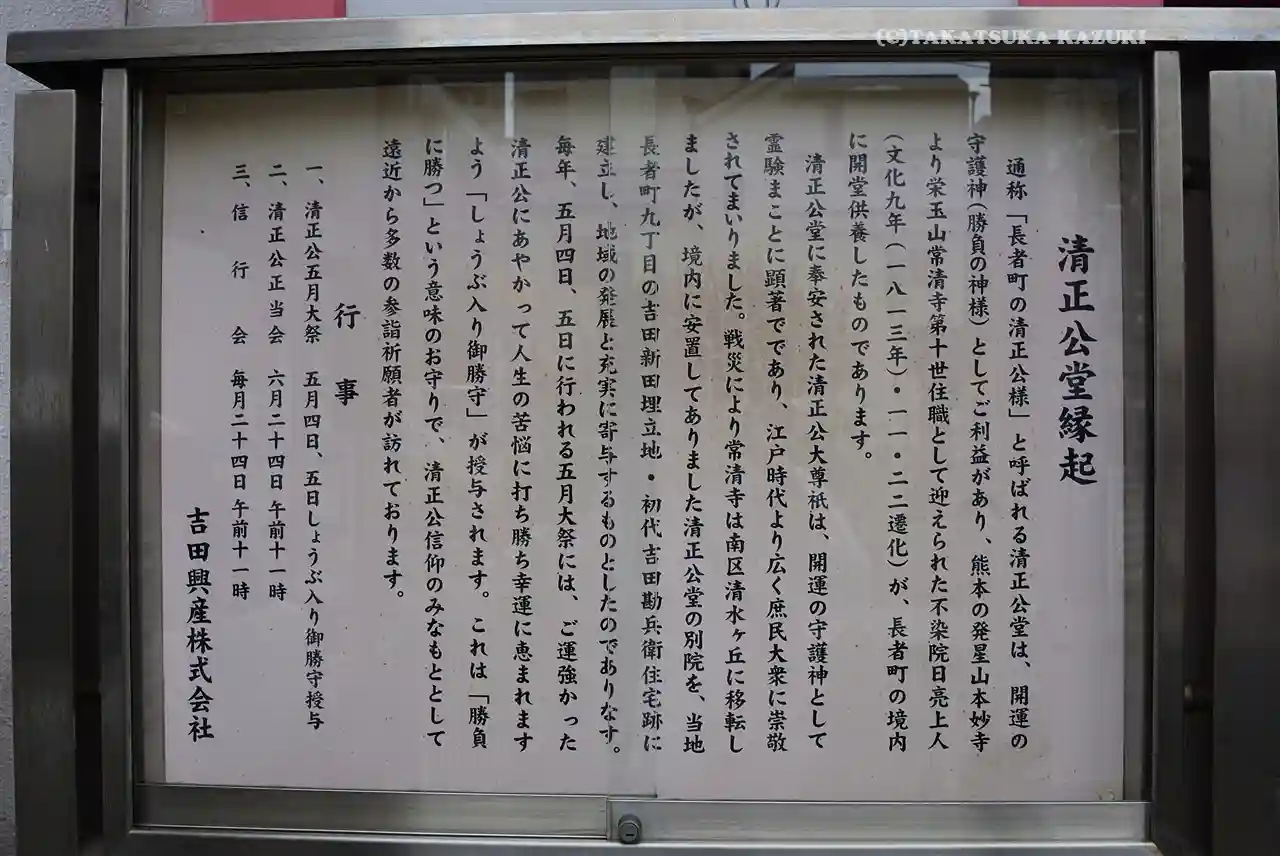 (C)TAKATSUKA KAZUKI
清正公堂縁起
通称「長者町の清正公様」と呼ばれる清正公堂は、開運の
守護神(勝負の神様)としてご利益があり、熊本の発星山本妙寺
より栄玉山常清寺第十世住職として迎えられた不染院日亮上人
(文化九年(一八一三年)・一一・二二遷化)が、長者町の境内
に開堂供養したものであります。
清正公堂に奉安された清正公大尊祇は、開運の守護神として
霊験まことに顕著でであり、江戸時代より広く庶民大衆に崇敬
されてまいりました。戦災により常清寺は南区清水ヶ丘に移転し
ましたが、境内に安置してありました清正公堂の別院を、当地
長者町九丁目の吉田新田埋立地・初代吉田勘兵衛住宅跡に
建立し、地域の発展と充実に寄与するものとしたのでありなす。
毎年、五月四日、五日に行われる五月大祭には、ご運強かった
清正公にあやかって人生の苦悩に打ち勝ち幸運に恵まれます
よう「しょうぶ入り御勝守」が授与されます。これは「勝負
に勝つ」という意味のお守りで、清正公信仰のみなもととして
遠近から多数の参詣祈願者が訪れております。
行事
一、清正公五月大祭 五月四日、五日しょうぶ入り御勝守授与
二、清正公正当会 六月二十四日午前十一時
三、信行会 毎月二十四日午前十一時
吉田興産株式会社